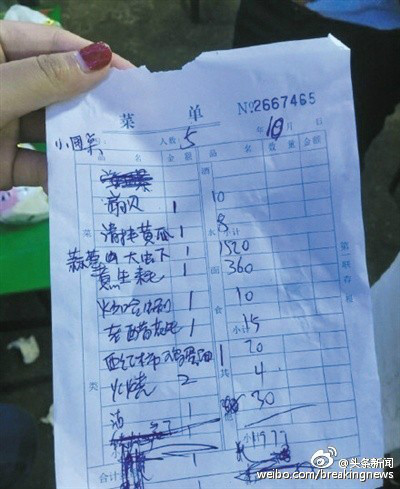 菜 单 №2667465
小圆桌 人数 5 年 10 月
品 名 金额 品 名 数量 金额
酒
扇贝 1 10
菜 清拌黄瓜 1 水 8 计
大虾 1520
1 面 360
1 10
老醋花生 1 食 小计 15
西红柿鸡蛋汤 1 共 20
类 火烧 2 4
酒 1 30
小 1977
合计
第一联存根
@头条新闻
weibo.com/breakingnews